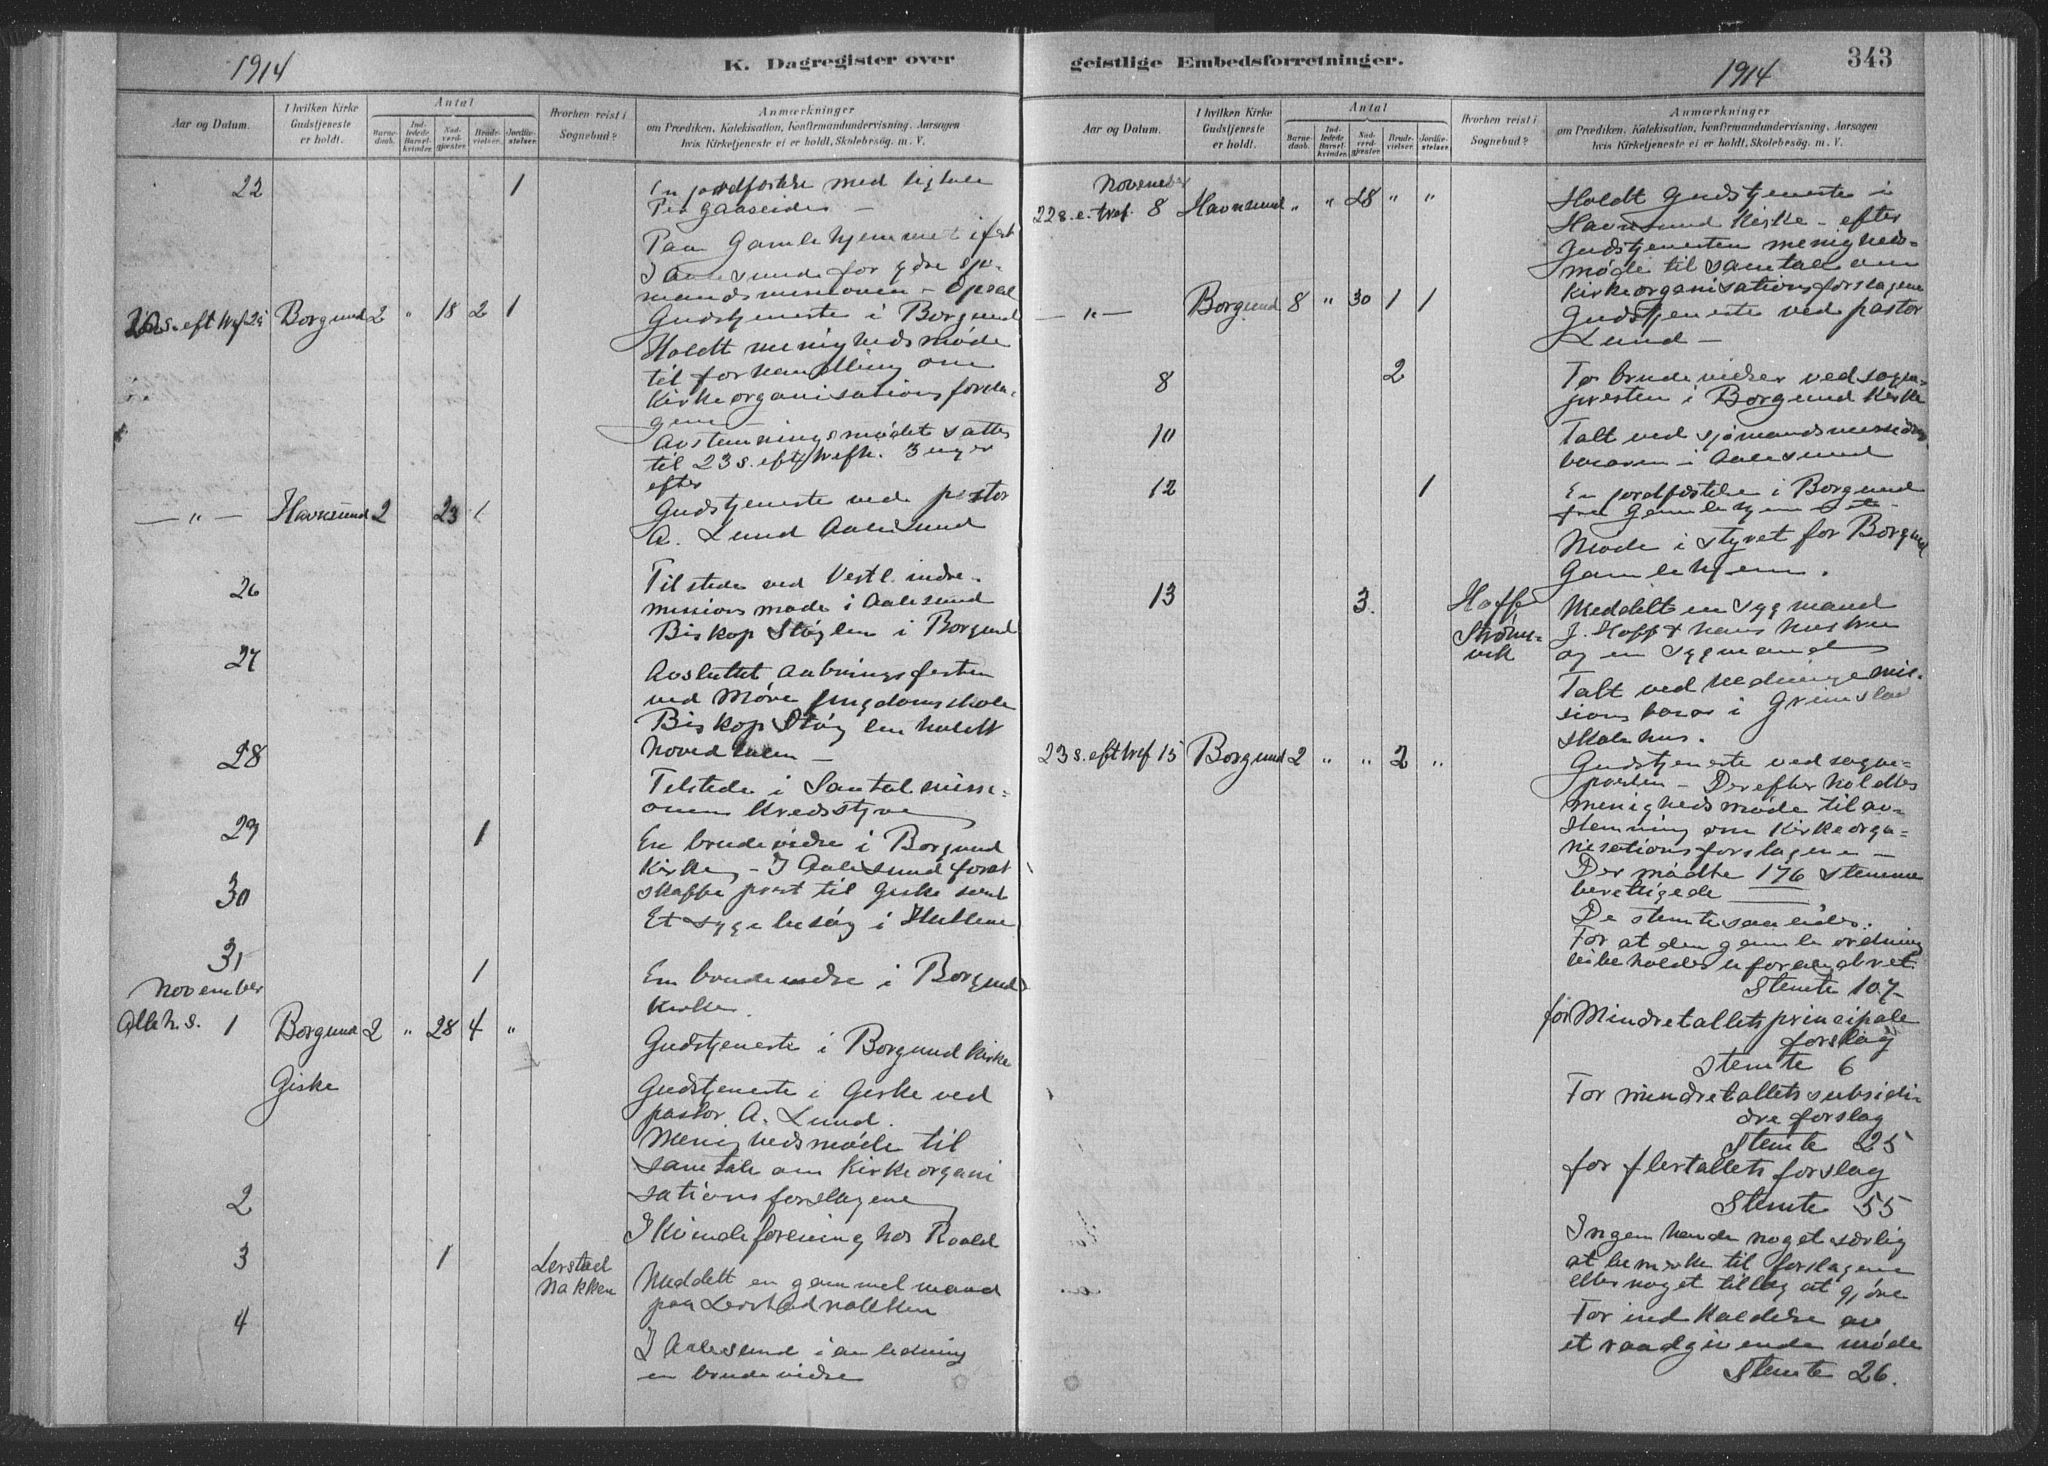 1914
K. Dagregister over
Aar og Datum.
I hvilken Kirke Gudstjeneste er holdt.
Antal
Barnedaab.
Indledede Barselkvinder.
Nadverdgjester.
Brudevielser.
Jordfæstelser.
Hvorhen reist i Sognebud?
Anmærkninger
om Prædiken, Katekisation, Konfirmandundervisning, Aarsagen
hvis Kirketjeneste ei er holdt, Skolebesøg. m. V.
22 1 En jordfæstelse med ligtale
Per Gaaseide —
Paa Gamlehjemmet i
I Aalesund for sjø-
mandsmissionen —
s. eft tref 25 Borgund 2 " 18 2 1 Gudstjeneste i Borgund
Holdt menighedsmøde
til forhandling om
Kirkeorganisationsforsla-
gene
Avstemningsmødet sattes
til 23 s. eft tref. 3 uger
efter
— " — Havnsund 2 23 1 Gudstjeneste ved pastor
A. Lund Aalesund
26 Tilstede ved Vestl. indre-
missions møde i Aalesund
Biskop Støylen i Borgund
27 Avsluttet aabningsfesten
ved Møre ungdomsskole
Biskop Støylen holdt
hovedtalen —
28 Tilstede i Santalmissi-
onens kredsstyre
29 1 En brudevielse i Borgund
Kirke — I Aalesund for at
skaffe prest til Giske
30 Et sygebesøg i
31 1 En brudevielse i Borgund
Kirke.
November
Alleh. s. 1 Borgund 2 " 28 4 " Gudstjeneste i Borgund Kirke
Giske Gudstjeneste i Giske ved
pastor A. Lund.
Menighedsmøde til
samtale om Kirkeorgani
sationsforslagene
2 I Kvindeforening hos Roald
3 1 Lerstad
nakken Meddelt en gammel mand
paa Lerstadnakken
4 I Aalesund i anledning
en brudevielse
geistlige Embedsforretninger.
1914
343
Aar og Datum.
I hvilken Kirke Gudstjeneste er holdt.
Antal
Barnedaab.
Indledede Barselkvinder.
Nadverdgjester.
Brudevielser.
Jordfæstelser.
Hvorhen reist i Sognebud?
Anmærkninger
om Prædiken, Katekisation, Konfirmandundervisning, Aarsagen
hvis Kirketjeneste ei er holdt, Skolebesøg. m. V.
November
22 s. e. tref. 8 Havnsund " " 28 " " Holdt Gudstjeneste i
Havnsund Kirke — efter
Gudstjenesten menigheds-
møde til samtale om
Kirkeorganisationsforslagene
— " — Borgund 8 " 30 1 1 Gudstjeneste ved pastor
Lund —
8 2 To brudevielser ved sogne-
presten i Borgund Kirke
10 Talt ved sjømandsmissions
basaren i Aalesund
12 1 En jordfæstelse i Borgund
fra Gamlehjemmet —
Møde i styret for Borgund
Gamlehjem.
13 3. Hoff
Strøms-
vik Meddelt en sygmand
J. Hoff + hans hustru
og en sygmand
Talt ved hedningemis-
sions basar i Grimstad
skolehus.
23 s. eft tref 15 Borgund 2 " " 2 " Gudstjeneste ved sogne-
presten — Derefter holdtes
menighedsmøde til av-
stemning om Kirkeorga-
nisationsforslagene —
Der mødte 176 stemme
berettigede
De stemte saaledes:
For at den gamle ordning
beholdes uforandret
Stemte 107
for Mindretallets principale
forslag
Stemte 6
For mindretallets subsidi-
ære forslag
Stemte 25
for flertallets forslag
Stemte 55
Ingen hande noget særlig
at bemerke til forslagene
eller noget tillæg at gjøre
For indkaldelse av
et raadgivende møde
Stemte 26.